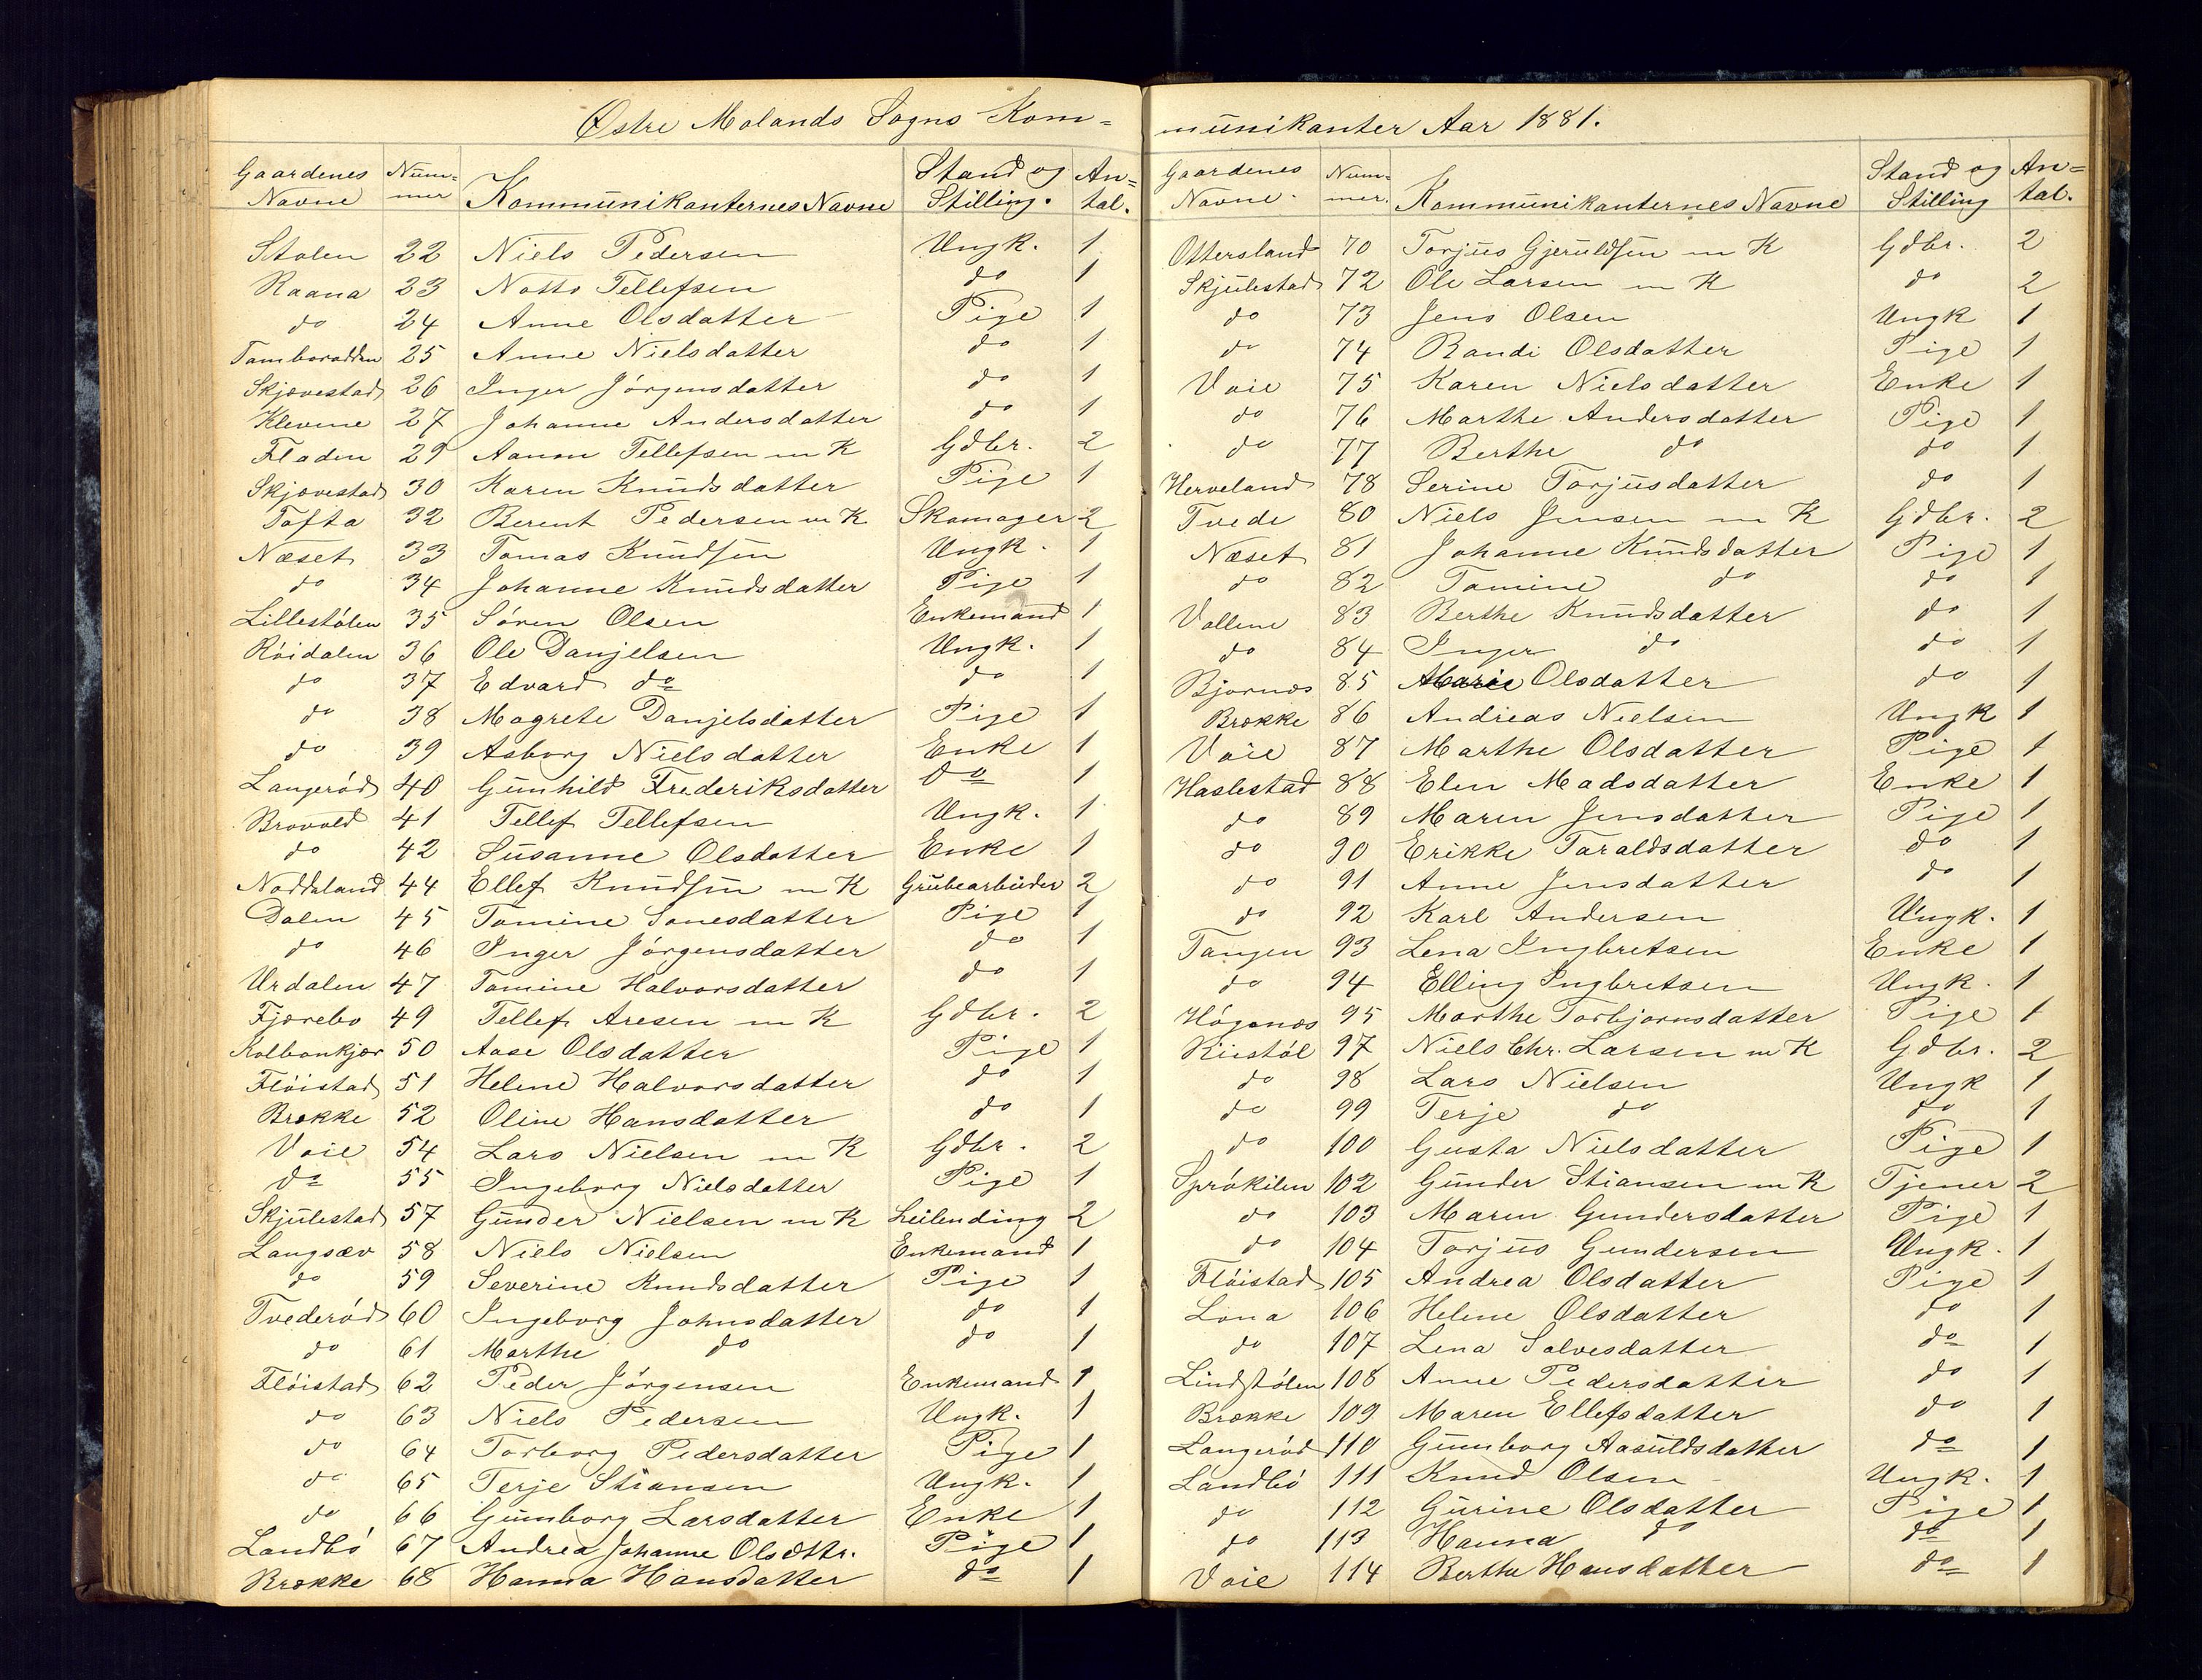 Østre Molands Sogns Kom=
Gaardenes Navne Num=mer Kommunikanternes Navne Stand og Stilling. An=tal.
Stølen 22 Niels Pedersen Ungk. 1
Raana 23 Notto Tellefsen do 1
do 24 Anne Olsdatter Pige 1
25 Anne Nielsdatter do 1
Skjævestad 26 Inger Jörgensdatter do 1
Klevene 27 Johanne Andersdatter do 1
Fladen 29 Aanon Tellefsen m K Gdbr. 2
Skjævestad 30 Karen Knudsdatter Pige 1
Tofta 32 Berent Pedersen m K Skomager 2
Næset 33 Tomas Knudsen Ungk. 1
do 34 Johanne Knudsdatter Pige 1
Lillestölen 35 Sören Olsen Enkemand 1
Röidalen 36 Ole Danjelsen Ungk. 1
do 37 Edvard do do 1
do 38 Magrete Danjelsdatter Pige 1
do 39 Asborg Nielsdatter Enke 1
Langeröd 40 Gunhild Frederiksdatter do 1
Brovold 41 Tellef Tellefsen Ungk. 1
do 42 Susanne Olsdatter Enke 1
Noddeland 44 Ellef Knudsen m K Grubearbeider 2
Dalen 45 Tomine Tonesdatter Pige 1
do 46 Inger Jörgensdatter do 1
Urdalen 47 Tomine Halvorsdatter do 1
Fjærebo 49 Tellef Aresen m K Gdbr. 2
Kolbonkjær 50 Aase Olsdatter Pige 1
Flöistad 51 Helene Halvorsdatter do 1
Brække 52 Oline Hansdatter do 1
Voie 54 Lars Nielsen m K Gdbr. 2
do 55 Ingeborg Nielsdatter Pige 1
Skjulestad 57 Gunder Nielsen m K Leilending 2
Langsæv 58 Niels Nielsen Enkemand 1
do 59 Severine Knudsdatter Pige 1
Tvederöd 60 Ingeborg Johnsdatter do 1
do 61 Marthe do do 1
Flöistad 62 Peder Jörgensen Enkemand 1
do 63 Niels Pedersen Ungk. 1
do 64 Torborg Pedersdatter Pige 1
do 65 Terje Stiansen Ungk. 1
do 66 Gunborg Larsdatter Enke 1
Landbö 67 Andrea Johanne Olsdttr. Pige 1
Brække 68 Hanna Hansdatter do 1
munikanter Aar 1881.
Gaardenes Navne. Num=mer. Kommunikanternes Navne Stand og Stilling An=tal.
Ottersland 70 Torjus Gjeruldsen m K Gdbr. 2
Skjulestad 72 Ole Larsen m K do 2
do 73 Jens Olsen Ungk 1
do 74 Randi Olsdatter Pige 1
Voie 75 Karen Nielsdatter Enke 1
do 76 Marthe Andersdatter Pige 1
do 77 Berthe do do 1
Herveland 78 Serine Torjusdatter do 1
Tvede 80 Niels Jensen m K Gdbr. 2
Næset 81 Johanne Knudsdatter Pige 1
do 82 Tomine do do 1
Vollene 83 Berthe Knudsdatter do 1
do 84 Inger do do 1
Bjornæs 85 Marie Olsdatter do 1
Brække 86 Andreas Nielsen Ungk 1
Voie 87 Marthe Olsdatter Pige 1
Haslestad 88 Elen Madsdatter Enke 1
do 89 Maren Jensdatter Pige 1
do 90 Erikke Taraldsdatter do 1
do 91 Anne Jensdatter do 1
do 92 Karl Andersen Ungk. 1
Tangen 93 Lena Ingbretsen Enke 1
do 94 Elling Ingbretsen Ungk. 1
Högenæs 95 Marthe Torbjornsdatter Pige 1
97 Niels Chr. Larsen m K Gdbr. 2
do 98 Lars Nielsen Ungk 1
do 99 Terje do do 1
do 100 Gusta Nielsdatter Pige 1
Sprökilen 102 Gunder Stiansen m K Tjener 2
do 103 Maren Gundersdatter Pige 1
do 104 Torjus Gundersen Ungk. 1
Flöistad 105 Andrea Olsdatter Pige 1
Lona 106 Helene Olsdatter do 1
do 107 Lena Salvesdatter do 1
Lindstölen 108 Anne Pedersdatter do 1
Brække 109 Maren Ellefsdatter do 1
Langeröd 110 Gunborg Aasuldsdatter do 1
Landbö 111 Knud Olsen Ungk. 1
do 112 Gurine Olsdatter Pige 1
do 113 Hanna do do 1
Voie 114 Berthe Hansdatter do 1